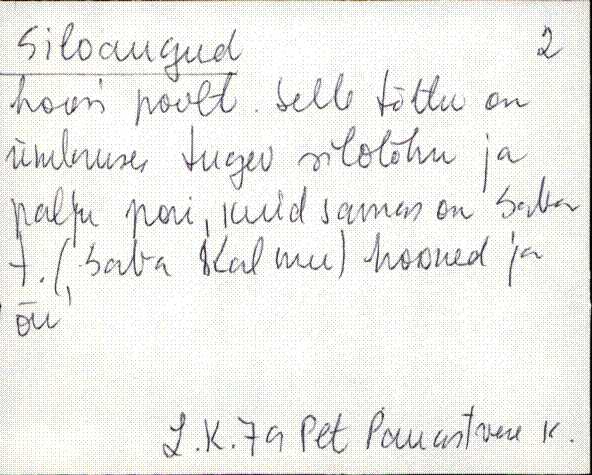 Siloaugud 2
hoovi poolt. Selle tõttu on
ümbruses tugev silolõhn ja
palju pori, kuid samas on Saba
t. (Saba Kalmu) hooned ja
õu
L.K. 79 Pet Panastvere k.